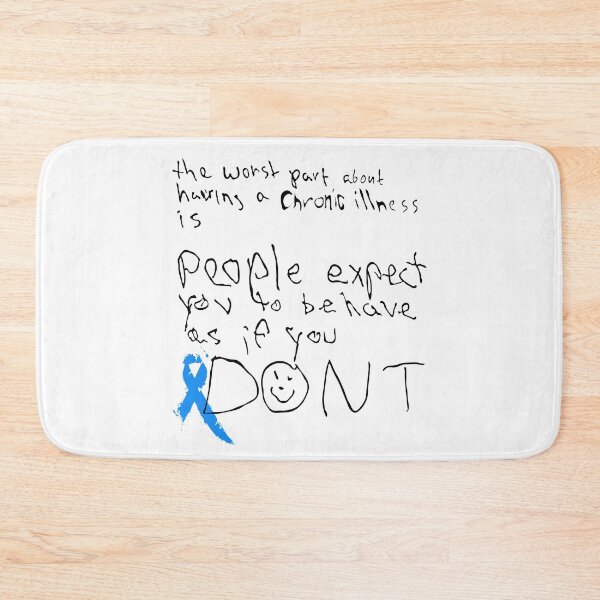 the worst part about
having a Chronic illness
is
people expect
you to behave
as if you
DONT